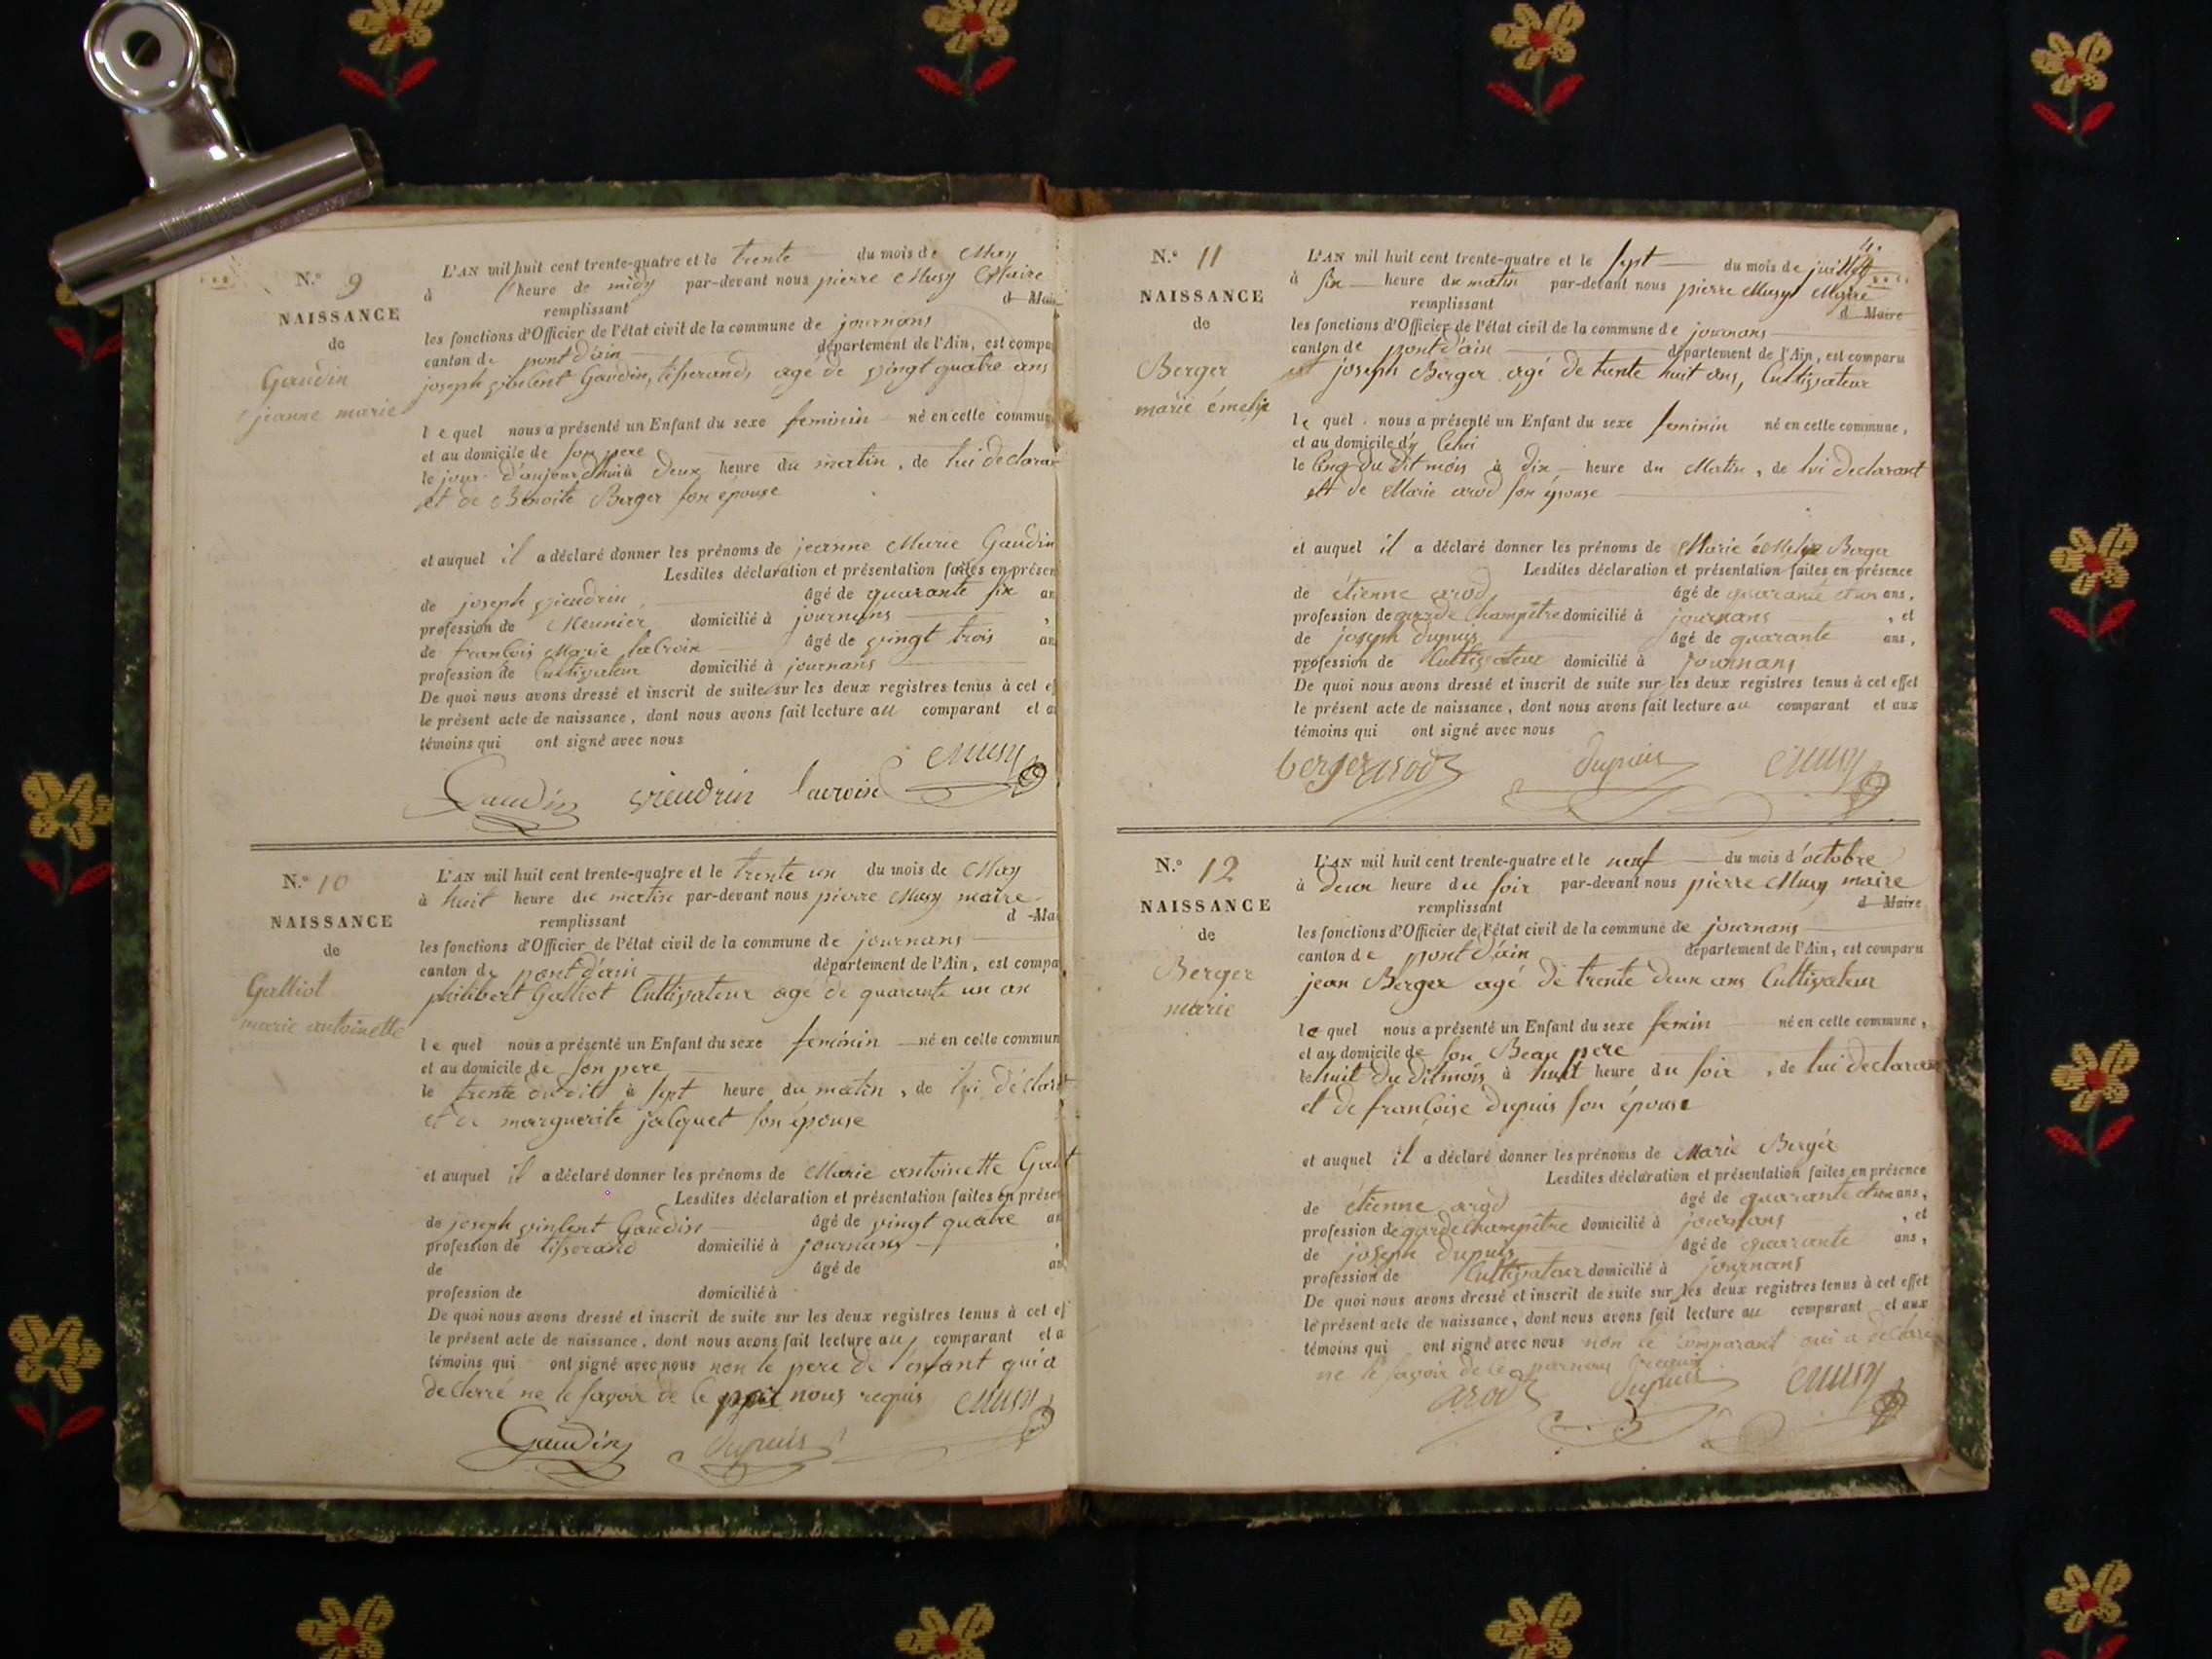 N.º 9
NAISSANCE
de
Gaudin
jeanne marie
L'AN mil huit cent trente-quatre et le trente du mois de May
à heure de midy par-devant nous pierre Musy Maire
remplissant d Mai
les fonctions d'Officier de l'état civil de la commune de journans
canton de pont d'ain département de l'Ain, est compa
joseph vincent Gaudin, tisserand, agé de vingt quatre ans
le quel nous a présenté un Enfant du sexe feminin né en cette commu
et au domicile de son pere
le jour d'aujourd'hui à deux heure du matin, de lui declara
et de Benoite Berger son épouse
et auquel il a déclaré donner les prénoms de jeanne Marie Gaudin
Lesdites déclaration et présentation faites en présen
de joseph viendrin âgé de quarante six an
profession de Meunier domicilié à journans ,
de francois Marie lacroix âgé de vingt trois an
profession de Cultivateur domicilié à journans
De quoi nous avons dressé et inscrit de suite sur les deux registres tenus à cet ef
le présent acte de naissance, dont nous avons fait lecture au comparant et a
témoins qui ont signé avec nous
Musy
Gaudin viendrin lacroix
N.º 10
NAISSANCE
de
Galliot
marie antoinette
L'AN mil huit cent trente-quatre et le trente un du mois de May
à huit heure du matin par-devant nous pierre Musy maire
remplissant d Ma
les fonctions d'Officier de l'état civil de la commune de journans
canton de pont d'ain département de l'Ain, est compa
philibert Galliot Cultivateur agé de quarante un an
le quel nous a présenté un Enfant du sexe feminin né en cette commun
et au domicile de son pere
le trente dudit à sept heure du matin, de lui déclara
et de marguerite jacquet son épouse
et auquel il a déclaré donner les prénoms de Marie antoinette Gall
Lesdites déclaration et présentation faites en présen
de joseph vincent Gaudin âgé de vingt quatre an
profession de tisserand domicilié à journans ,
de âgé de an
profession de domicilié à
De quoi nous avons dressé et inscrit de suite sur les deux registres tenus à cet ef
le présent acte de naissance, dont nous avons fait lecture au comparant et a
témoins qui ont signé avec nous non le pere de l'enfant qui a
declaré ne le savoir de ce nous requis Musy
Gaudin dupuis
4.
N.º 11
NAISSANCE
de
Berger
marie émelie
L'AN mil huit cent trente-quatre et le sept du mois de juillet
à six heure du matin par-devant nous pierre Musy Maire
remplissant d Maire
les fonctions d'Officier de l'état civil de la commune de journans
canton de pont d'ain département de l'Ain, est comparu
joseph Berger agé de trente huit ans, Cultivateur
le quel nous a présenté un Enfant du sexe feminin né en cette commune,
et au domicile
le cinq du dit mois à dix heure du Matin, de lui declarant
et de Marie arod son épouse
et auquel il a déclaré donner les prénoms de Marie émelie Berger
Lesdites déclaration et présentation faites en présence
de étienne arod âgé de quarante et un ans,
profession de garde Champêtre domicilié à journans , et
de joseph dupuis âgé de quarante ans,
profession de Cultivateur domicilié à journans
De quoi nous avons dressé et inscrit de suite sur les deux registres tenus à cet effet
le présent acte de naissance, dont nous avons fait lecture au comparant et aux
témoins qui ont signé avec nous
berger arod dupuis Musy
N.º 12
NAISSANCE
de
Berger
marie
L'AN mil huit cent trente-quatre et le neuf du mois d'octobre
à deux heure du soir par-devant nous pierre Musy maire
remplissant d Maire
les fonctions d'Officier de l'état civil de la commune de journans
canton de pont d'ain département de l'Ain, est comparu
jean Berger agé de trente deux ans Cultivateur
le quel nous a présenté un Enfant du sexe femin né en cette commune,
et au domicile de son Beau pere
le huit du dit mois à huit heure du soir, de lui declarant
et de françoise dupuis son épouse
et auquel il a déclaré donner les prénoms de Marie Berger
Lesdites déclaration et présentation faites en présence
de étienne arod âgé de quarante et un ans,
profession de garde Champêtre domicilié à journans , et
de joseph dupuis âgé de quarante ans,
profession de Cultivateur domicilié à journans
De quoi nous avons dressé et inscrit de suite sur les deux registres tenus à cet effet
le présent acte de naissance, dont nous avons fait lecture au comparant et aux
témoins qui ont signé avec nous non le comparant qui a declaré
ne le savoir de ce par nous requis
arod dupuis Musy